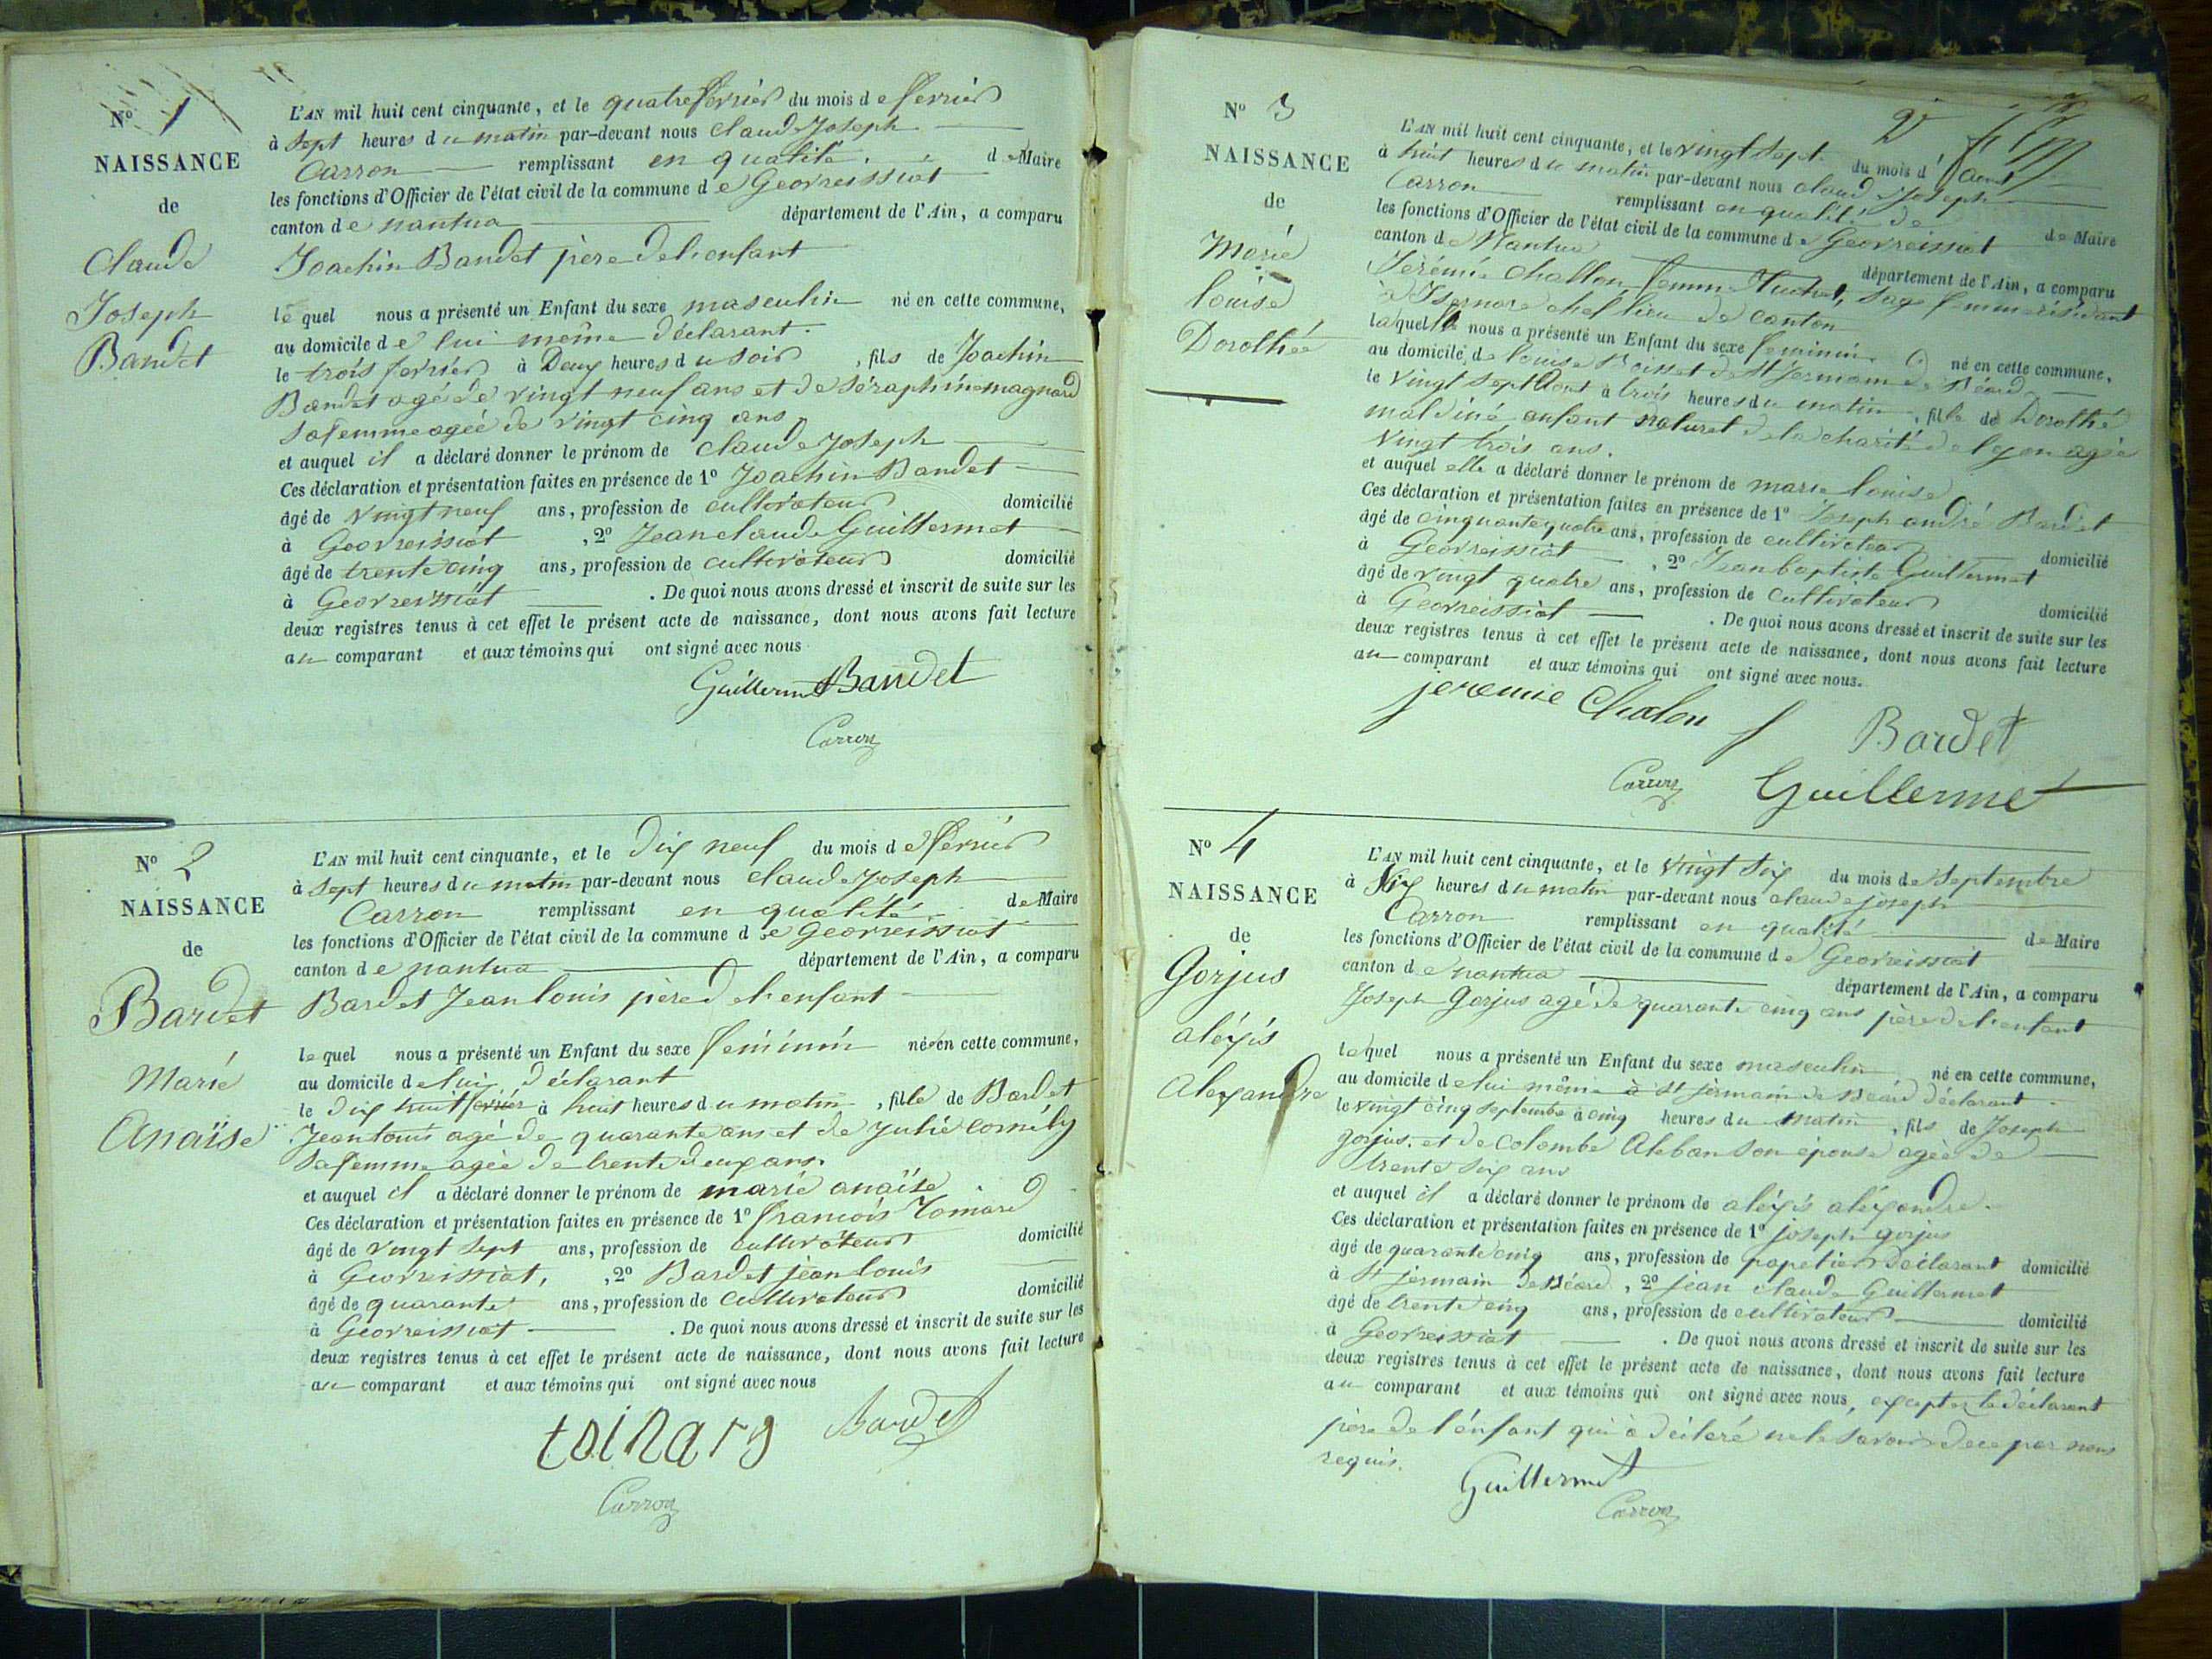 N° 1
NAISSANCE
de
Claude
Joseph
Bandet
L'AN mil huit cent cinquante, et le quatre ferrier du mois de ferrier
à sept heures du matin par-devant nous Claude Joseph
Carron remplissant en qualité de Maire
les fonctions d'Officier de l'état civil de la commune de Georreissiat
canton de nantua département de l'Ain, a comparu
Joachin Bandet père de l'enfant
lequel nous a présenté un Enfant du sexe masculin né en cette commune,
au domicile de lui même déclarant.
le trois ferrier à Deux heures du soir, fils de Joachin
Bandet agé de vingt neuf ans et de Séraphine magnard
sa femme agée de vingt cinq ans
et auquel il a déclaré donner le prénom de Claude Joseph
Ces déclaration et présentation faites en présence de 1° Joachin Bandet
âgé de vingt neuf ans, profession de cultivateur domicilié
à Georreissiat, 2° Jean claude Guillermet
âgé de trente cinq ans, profession de cultivateur domicilié
à Georreissiat. De quoi nous avons dressé et inscrit de suite sur les
deux registres tenus à cet effet le présent acte de naissance, dont nous avons fait lecture
au comparant et aux témoins qui ont signé avec nous
Guillermet Bandet
Carron
N° 2
NAISSANCE
de
Bardet
Marie
Anaïse
L'AN mil huit cent cinquante, et le dix neuf du mois de ferrier
à sept heures du matin par-devant nous claude Joseph
Carron remplissant en qualité de Maire
les fonctions d'Officier de l'état civil de la commune de Georreissiat
canton de nantua département de l'Ain, a comparu
Bardet Jean louis père de l'enfant
lequel nous a présenté un Enfant du sexe feminin née en cette commune,
au domicile de lui déclarant
le dix huit ferrier à huit heures du matin, fille de Bardet
Jean louis agé de quarante ans et de Julie cornély
sa femme agée de trente deux ans.
et auquel il a déclaré donner le prénom de marie anaïse
Ces déclaration et présentation faites en présence de 1° francois
âgé de vingt sept ans, profession de cultivateur domicilié
à Georreissiat, 2° Bardet jean louis
âgé de quarante ans, profession de cultivateur domicilié
à Georreissiat. De quoi nous avons dressé et inscrit de suite sur les
deux registres tenus à cet effet le présent acte de naissance, dont nous avons fait lecture
au comparant et aux témoins qui ont signé avec nous
Bardet
Carron
N° 3
NAISSANCE
de
Marie
louise
Dorothée
L'AN mil huit cent cinquante, et le vingt sept du mois d'aout
à huit heures du matin par-devant nous claude Joseph
Carron remplissant en qualité de de Maire
les fonctions d'Officier de l'état civil de la commune de Georreissiat
canton de Nantua département de l'Ain, a comparu
Jérémie Challon, femme sage femme résidant
à Isernore chef lieu de canton
laquelle nous a présenté un Enfant du sexe feminin né en cette commune,
au domicile de louise de St Jermain de Béard
le vingt sept Aout à trois heures du matin, fille de Dorothé
maldiné enfant naturel de la charité de lyon agée
vingt trois ans.
et auquel elle a déclaré donner le prénom de marie louise
Ces déclaration et présentation faites en présence de 1° Joseph andré Bardet
âgé de cinquante quatre ans, profession de cultivateur domicilié
à Georreissiat, 2° Jean baptiste Guillermet
âgé de vingt quatre ans, profession de cultivateur domicilié
à Georreissiat. De quoi nous avons dressé et inscrit de suite sur les
deux registres tenus à cet effet le présent acte de naissance, dont nous avons fait lecture
au comparant et aux témoins qui ont signé avec nous.
jeremie Chalon f Bardet
Carron Guillermet
N° 4
NAISSANCE
de
Gorjus
aléxis
Alexandre
L'AN mil huit cent cinquante, et le vingt six du mois de Septembre
à Six heures du matin par-devant nous claude joseph
Carron remplissant en qualité de Maire
les fonctions d'Officier de l'état civil de la commune de Georreissiat
canton de nantua département de l'Ain, a comparu
Joseph Gorjus agé de quarante cinq ans père de l'enfant
lequel nous a présenté un Enfant du sexe masculin né en cette commune,
au domicile de lui même à St jermain de Béard déclarant
le vingt cinq septembre à cinq heures du matin, fils de Joseph
gorjus. et de Colombe Aleban son épouse agée de
trente six ans
et auquel il a déclaré donner le prénom de aléxis aléxandre.
Ces déclaration et présentation faites en présence de 1° joseph gorjus
âgé de quarante cinq ans, profession de papetier déclarant domicilié
à St jermain de Béard, 2° jean claude Guillermet
âgé de trente cinq ans, profession de cultivateur domicilié
à Georreissiat. De quoi nous avons dressé et inscrit de suite sur les
deux registres tenus à cet effet le présent acte de naissance, dont nous avons fait lecture
au comparant et aux témoins qui ont signé avec nous, excepter le déclarant
père de l'enfant qui à déclaré ne le savoir de ce par nous
requis.
Guillermet
Carron